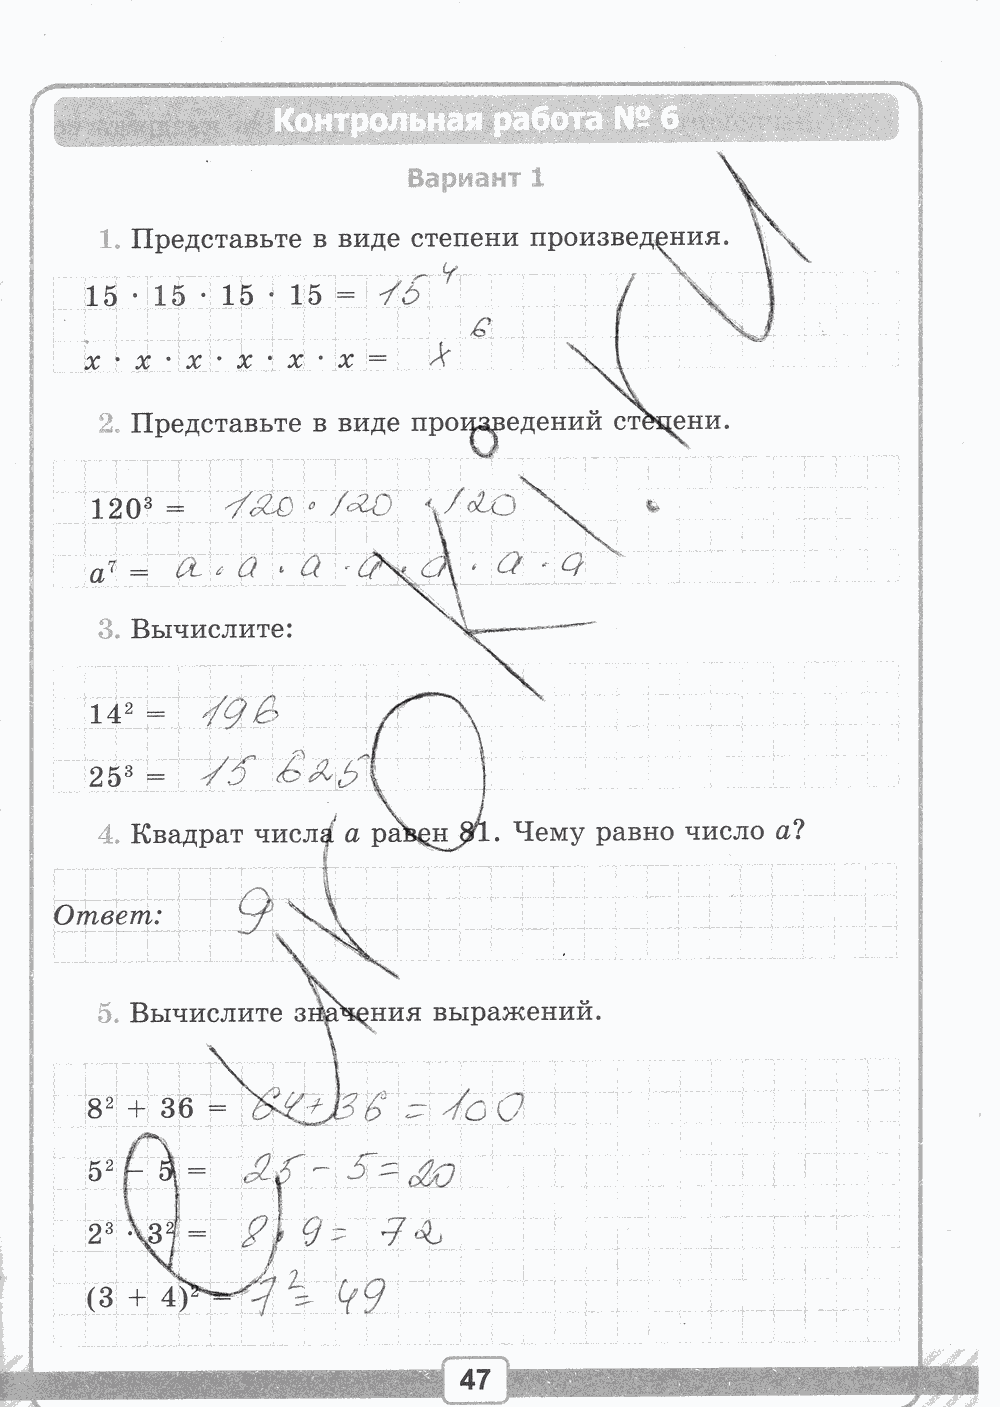 Контрольная работа № 6
Вариант 1
1. Представьте в виде степени произведения.
15 · 15 · 15 · 15 = 15⁴
x · x · x · x · x · x = x⁶
2. Представьте в виде произведений степени.
120³ = 120 · 120 · 120
a⁷ = a · a · a · a · a · a · a
3. Вычислите:
14² = 196
25³ = 15 625
4. Квадрат числа a равен 81. Чему равно число a?
Ответ: 9
5. Вычислите значения выражений.
8² + 36 = 64 + 36 = 100
5² − 5 = 25 − 5 = 20
2³ · 3² = 8 · 9 = 72
(3 + 4)² = 7² = 49
47